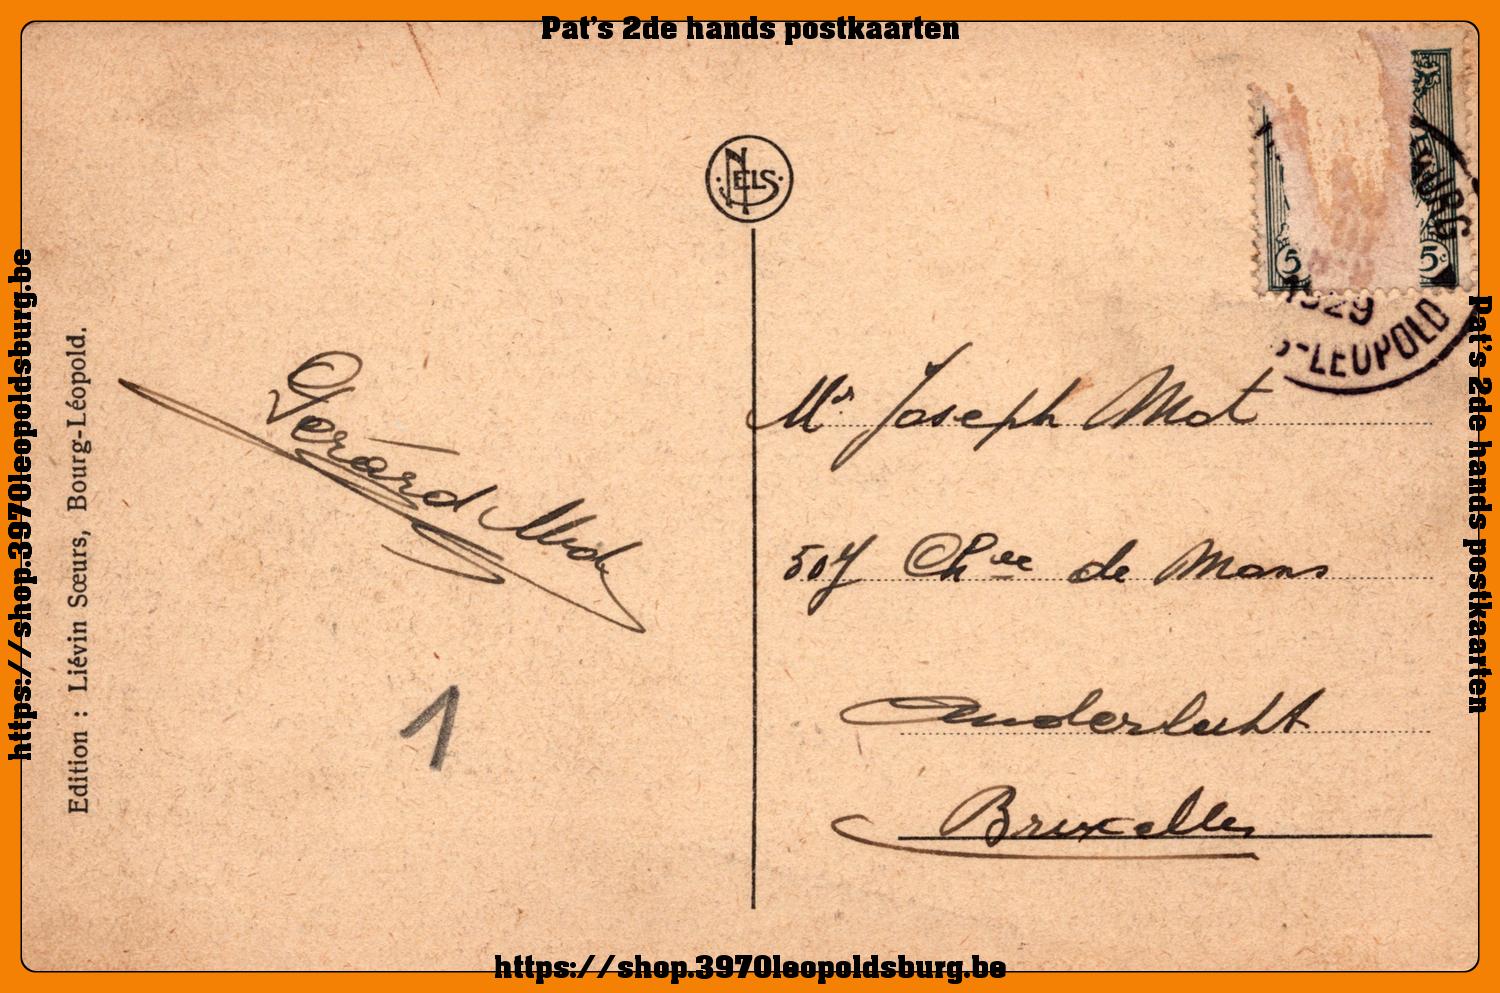 Pat's 2de hands postkaarten
https://shop.3970leopoldsburg.be
Edition : Liévin Sœurs, Bourg-Léopold.
NELS
5 5c
BURG
1929
G-LEOPOLD
Gérard Mot
1
Mr Joseph Mot
507 Chée de Mons
Anderlecht
Bruxelles
Pat's 2de hands postkaarten
https://shop.3970leopoldsburg.be